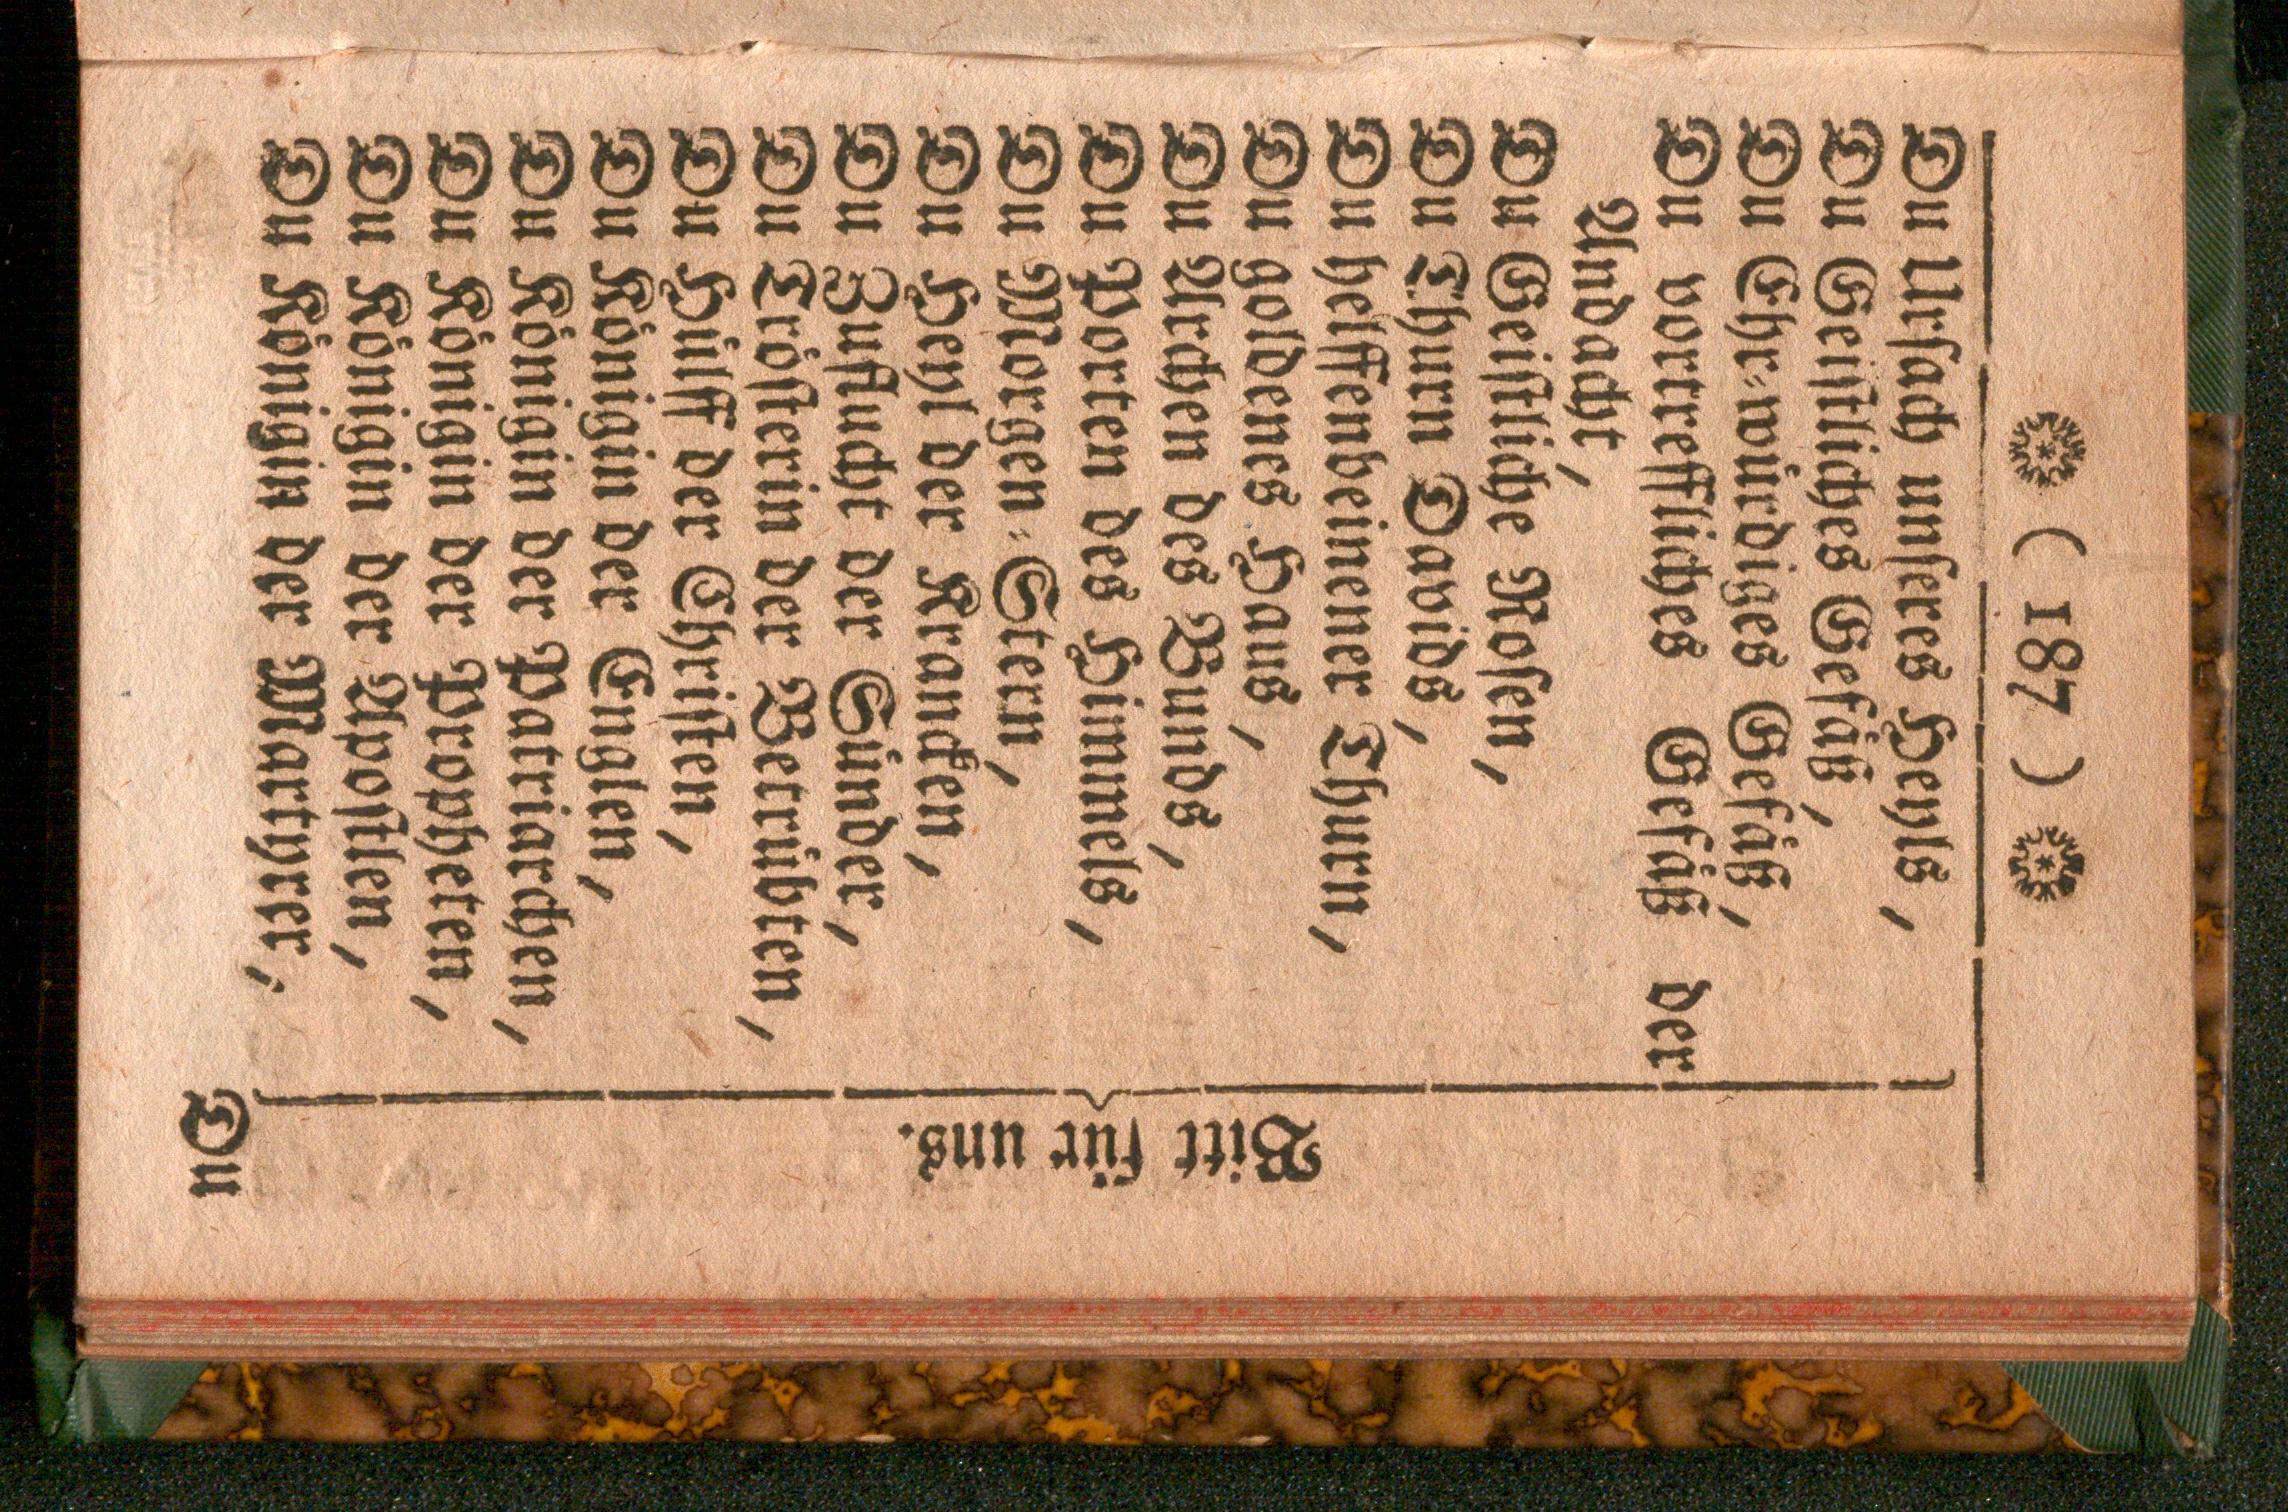 ( 187 )
Du Ursach unseres Heyls,
Du Geistliches Gefäß,
Du Ehr-würdiges Gefäß,
Du vortreffliches Gefäß der
Andacht,
Du Geistliche Rosen,
Du Thurn Davids,
Du helffenbeinener Thurn,
Du goldenes Haus,
Du Archen des Bunds,
Du Porten des Himmels,
Du Morgen-Stern,
Du Heyl der Krancken,
Du Zuflucht der Sünder,
Du Trösterin der Betrübten,
Du Hülff der Christen,
Du Königin der Englen,
Du Königin der Patriarchen,
Du Königin der Propheten,
Du Königin der Apostlen,
Du Königin der Martyrer,
Bitt für uns.
Du